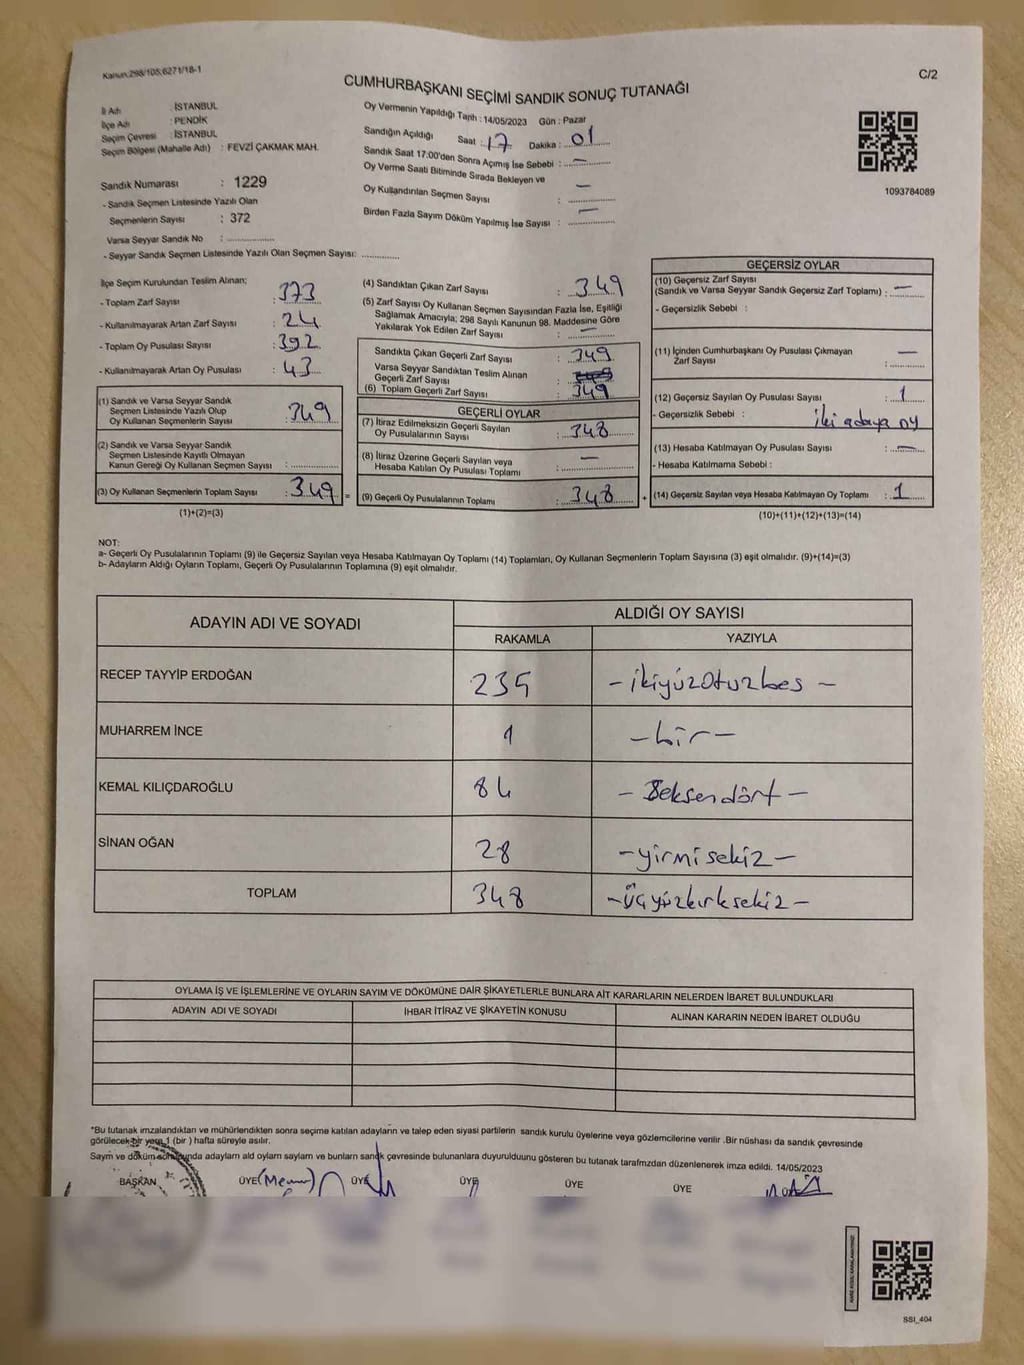 Kanun:298/105;6271/18-1
C/2
CUMHURBAŞKANI SEÇİMİ SANDIK SONUÇ TUTANAĞI
İl Adı : İSTANBUL
İlçe Adı : PENDİK
Seçim Çevresi : İSTANBUL
Seçim Bölgesi (Mahalle Adı) : FEVZİ ÇAKMAK MAH.
Sandık Numarası : 1229
- Sandık Seçmen Listesinde Yazılı Olan
Seçmenlerin Sayısı : 372
Varsa Seyyar Sandık No : ................
- Seyyar Sandık Seçmen Listesinde Yazılı Olan Seçmen Sayısı: .............
Oy Vermenin Yapıldığı Tarih : 14/05/2023 Gün : Pazar
Sandığın Açıldığı Saat : 17 Dakika : 01
Sandık Saat 17:00'den Sonra Açımış İse Sebebi : —
Oy Verme Saati Bitiminde Sırada Bekleyen ve
Oy Kullandırılan Seçmen Sayısı : —
Birden Fazla Sayım Döküm Yapılmış İse Sayısı : —
1093784089
İlçe Seçim Kurulundan Teslim Alınan;
- Toplam Zarf Sayısı : 373
- Kullanılmayarak Artan Zarf Sayısı : 24
- Toplam Oy Pusulası Sayısı : 392
- Kullanılmayarak Artan Oy Pusulası : 43
(1) Sandık ve Varsa Seyyar Sandık
Seçmen Listesinde Yazılı Olup
Oy Kullanan Seçmenlerin Sayısı : 349
(2) Sandık ve Varsa Seyyar Sandık
Seçmen Listesinde Kayıtlı Olmayan
Kanun Gereği Oy Kullanan Seçmen Sayısı : ................
(3) Oy Kullanan Seçmenlerin Toplam Sayısı : 349 =
(1)+(2)=(3)
(4) Sandıktan Çıkan Zarf Sayısı : 349
(5) Zarf Sayısı Oy Kullanan Seçmen Sayısından Fazla İse, Eşitliği
Sağlamak Amacıyla; 298 Sayılı Kanunun 98. Maddesine Göre
Yakılarak Yok Edilen Zarf Sayısı : —
Sandıkta Çıkan Geçerli Zarf Sayısı : 349
Varsa Seyyar Sandıktan Teslim Alınan
Geçerli Zarf Sayısı :
(6) Toplam Geçerli Zarf Sayısı : 349
GEÇERLİ OYLAR
(7) İtiraz Edilmeksizin Geçerli Sayılan
Oy Pusulalarının Sayısı : 348
(8) İtiraz Üzerine Geçerli Sayılan veya
Hesaba Katılan Oy Pusulası Toplamı : —
(9) Geçerli Oy Pusulalarının Toplamı : 348 +
GEÇERSİZ OYLAR
(10) Geçersiz Zarf Sayısı
(Sandık ve Varsa Seyyar Sandık Geçersiz Zarf Toplamı) : —
- Geçersizlik Sebebi :
(11) İçinden Cumhurbaşkanı Oy Pusulası Çıkmayan
Zarf Sayısı : —
(12) Geçersiz Sayılan Oy Pusulası Sayısı : 1
- Geçersizlik Sebebi : iki adaya oy
(13) Hesaba Katılmayan Oy Pusulası Sayısı : —
- Hesaba Katılmama Sebebi :
(14) Geçersiz Sayılan veya Hesaba Katılmayan Oy Toplamı : 1
(10)+(11)+(12)+(13)=(14)
NOT:
a- Geçerli Oy Pusulalarının Toplamı (9) ile Geçersiz Sayılan veya Hesaba Katılmayan Oy Toplamı (14) Toplamları, Oy Kullanan Seçmenlerin Toplam Sayısına (3) eşit olmalıdır. (9)+(14)=(3)
b- Adayların Aldığı Oyların Toplamı, Geçerli Oy Pusulalarının Toplamına (9) eşit olmalıdır.
ADAYIN ADI VE SOYADI
ALDIĞI OY SAYISI
RAKAMLA YAZIYLA
RECEP TAYYİP ERDOĞAN 235 - ikiyüzotuzbeş -
MUHARREM İNCE 1 - bir -
KEMAL KILIÇDAROĞLU 84 - Seksendört -
SİNAN OĞAN 28 - yirmisekiz -
TOPLAM 348 - üçyüzkırksekiz -
OYLAMA İŞ VE İŞLEMLERİNE VE OYLARIN SAYIM VE DÖKÜMÜNE DAİR ŞİKAYETLERLE BUNLARA AİT KARARLARIN NELERDEN İBARET BULUNDUKLARI
ADAYIN ADI VE SOYADI İHBAR İTİRAZ VE ŞİKAYETİN KONUSU ALINAN KARARIN NEDEN İBARET OLDUĞU
*Bu tutanak imzalandıktan ve mühürlendikten sonra seçime katılan adayların ve talep eden siyasi partilerin sandık kurulu üyelerine veya gözlemcilerine verilir .Bir nüshası da sandık çevresinde
görülecek bir yere 1 (bir ) hafta süreyle asılır.
Sayım ve döküm sonunda adayların aldı oyların sayları ve bunların sandık çevresinde bulunanlara duyurulduunu gösteren bu tutanak tarafmzdan düzenlenerek imza edildi. 14/05/2023
BAŞKAN ÜYE(Memur) ÜYE ÜYE ÜYE ÜYE
SSI_404